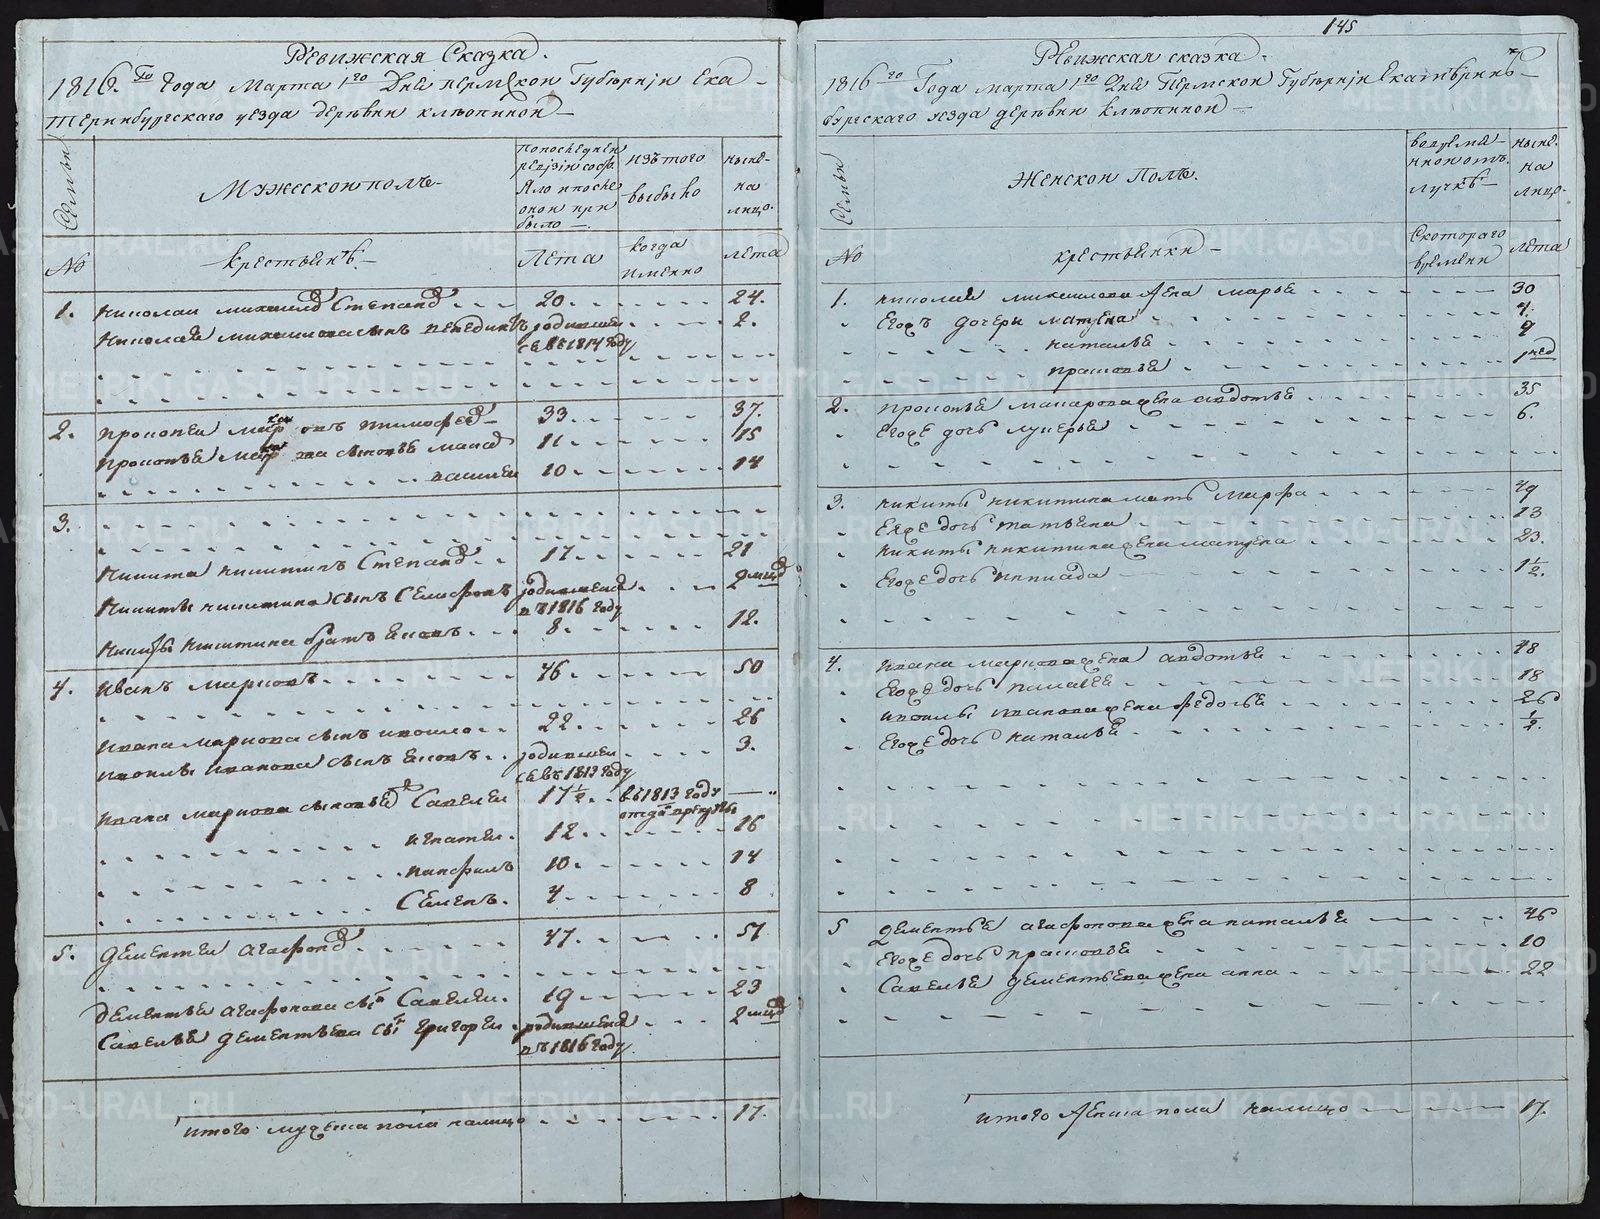 145
Ревижская Сказка.
1816.го Года Марта 1го Дня пермской Губернiи Ека-
теринбургского уезда деревни клюпиной
Семьи
Мужеской полъ
По последней ревизiи состояло и после оной прибыло
изъ того выбыло
ныне на лицо
No
крестьянъ
Лета
когда именно
лета
1. николай михаилов Степанов 20. 24.
николая михаилова сынъ венедиктъ родившей 2.
ся въ 1814 году
2. прокопей макаровъ тимофеев 33. 37.
прокопья макарова сыновья 11 15
василей 10 14
3.
никита никитинъ Степанов 17 21
никиты никитина сынъ Селифонъ родившейся 2 мцов
въ 1816 году
никиты никитина братъ 8. 12.
4. иванъ марковъ 46 50
ивана маркова сынъ изоило 22 26
изоилы иванова сынъ родившей 3.
ся въ 1813 году
ивана маркова сыновья Савелей 17½ въ 1813 году —
отдан в рекруты
игнатей. 12. 16
панфилъ 10. 14
Семенъ. 4 8
5. дементей агафонов 47. 51
дементья агафонова сынъ Савелей. 19 23
Савелья дементьева сынъ григорей родившейся 2 мцов
въ 1816 году
итого мужеска пола налицо 17.
Ревижская сказка.
1816го Года марта 1го Дня Пермской Губернiи Екатерин-
бургского уезда деревни клюпиной
Семьи
Женской Полъ.
во временной отлучке
ныне на лицо.
No
крестьянки
Скоторого времени
лета
1. николая михаилова жена марья 30
Егожъ дочери матрена 7.
наталья
прасковья 1 нед
2. прокопья макарова жена авдотья 35
Егоже дочь лукерья 6.
3. никиты никитина мать марфа 49
Ея же дочь татьяна 13
никиты никитина жена матрена 23.
Егоже дочь 1½.
4. ивана маркова жена авдотья 48
Егоже дочь 18
изоилы иванова жена федосья 26
Егоже дочь наталья ½.
5 дементья агафонова жена наталья 46
Егоже дочь прасковья 10
Савелья дементьева жена анна 22
итого женска пола налицо 17.